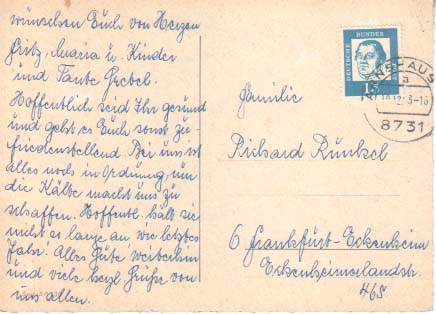 wünschen Euch von Herzen
Fritz, Maria u. Kinder
und Tante Gretel.
Hoffentlich seid Ihr gesund
und geht es Euch sonst zu-
friedenstellend. Bei uns ist
alles noch in Ordnung, nur
die Kälte macht uns zu
schaffen. Hoffentl. hält sie
nicht es lange an, wie letztes
Jahr. Alles Gute weiterhin
und viele herzl. Grüße von
uns allen.
DEUTSCHE BUNDESPOST
15
a
8731
Familie
Richard Runkel
6 Frankfurt-Eckenheim
Eckenheimerlandstr.
465